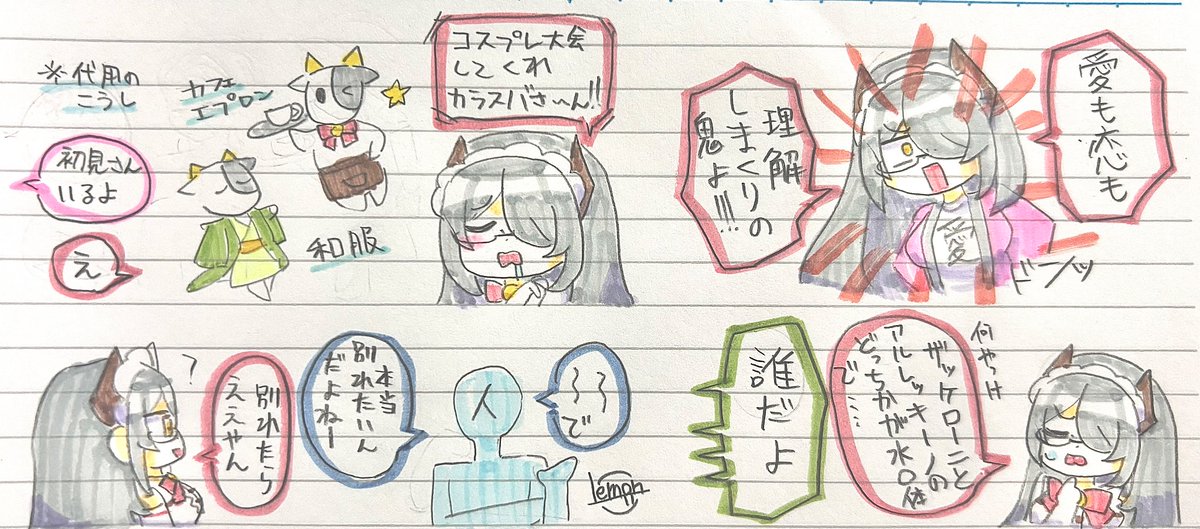 愛も恋も
理解
しまくりの
鬼よ!!!
愛
ドーンッ
コスプレ大会
してくれ
カラスバさ〜ん!!
カフェ
エプロン
※代用の
こうし
和服
初見さん
いるよ
え
何やっけ
ザッケローニと
アルレッキーノの
どっちかが水〇体
で……
誰だよ
〜〜で
人
本当
別れたいん
だよねー
別れたら
ええやん
?
lemon